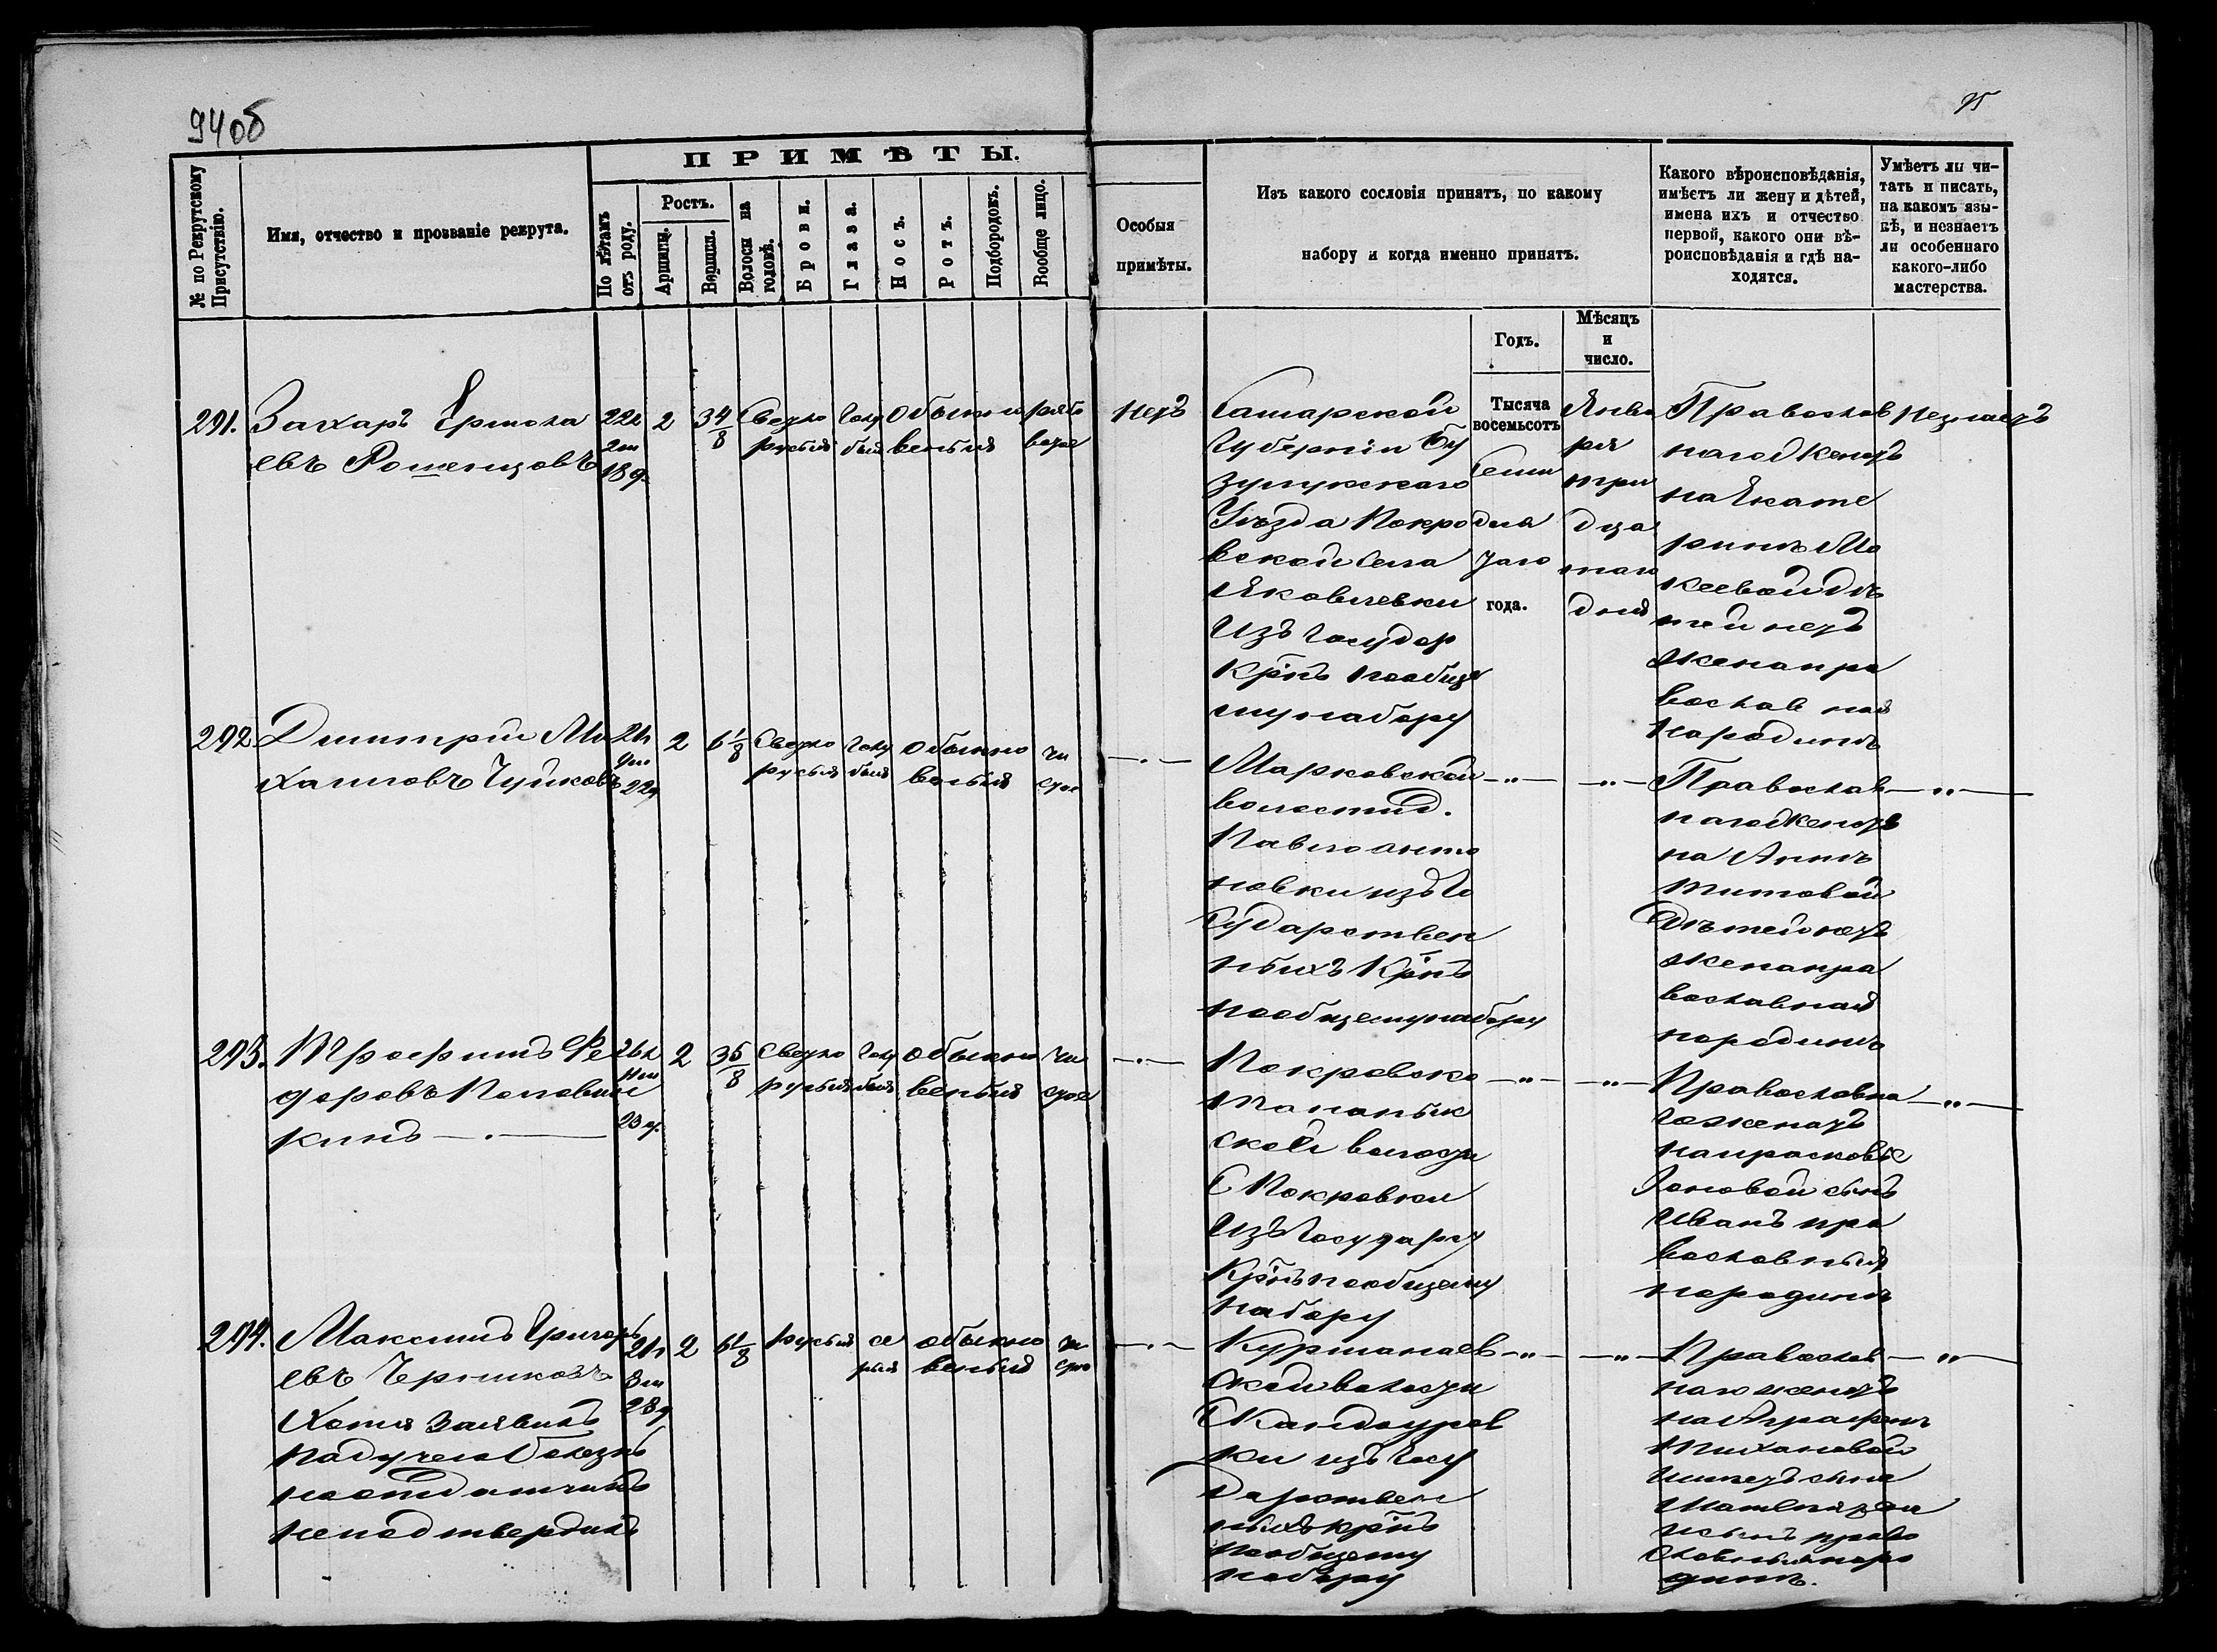 94об
95
ПРИМѢТЫ.
№ по Рекрутскому Присутствію.
Имя, отчество и прозваніе рекрута.
По лѣтамъ отъ роду.
Ростъ.
Аршины.
Вершки.
Волосы на головѣ.
Брови.
Глаза.
Носъ.
Ротъ.
Подбородокъ.
Вообще лицо.
Особыя примѣты.
Изъ какого сословія принятъ, по какому
набору и когда именно принятъ.
Годъ.
Мѣсяцъ и число.
Какого вѣроисповѣданія,
имѣетъ ли жену и дѣтей,
имена ихъ и отчество
первой, какого они вѣ-
роисповѣданія и гдѣ на-
ходятся.
Умѣетъ ли чи-
тать и писать,
на какомъ язы-
кѣ, и незнаетъ
ли особеннаго
какого-либо
мастерства.
291.
Захаръ Ермола
евъ
22л
2м
18д.
2
3 4/8
Светло
русыя
голу
быя
обыкно
веныя
рябо
ватое
нетъ
Самарской
Губерніи Бу
зулукскаго
Уѣзда Покро
вской села
Яковлевки
Изъ Государ
крѣнъ пообще
му набору
Тысяча
восемьсотъ
семи
деся
таго
года.
Янва
ря
три
дца
таго
дня
Православ
наго Женатъ
на Екате
ринѣ Мо
кеевой дѣ
тей нетъ
жена пра
вослав ная
народинѣ
незнаетъ
292
Дмитрій Ми
хаиловъ Чуйковъ
21л
9м
22д
2
6 1/8
Светло
русыя
голу
быя
обыкно
веныя
чи
стое
Марковской
волости д.
Павло анто
новки изъ Го
сударствен
ныхъ Крнъ
пообщемунабору
Православ
наго Женатъ
на Аннѣ
Титовой
Дѣтей нетъ
жена пра
вославная
народинѣ
293.
Трофимъ Фе
доровъ Половин
кинъ
26л
11м
2
3 5/8
светло
русыя
голу
быя
обыкно
веныя
чи
стое
Покровско
Талов
ской волости
С Покровки
Изъ Государст
Крнъ пообщему
набору
Православна
го женатъ
на прасковье
Іоновой сынъ
Иванъ пра
вославныя
народинѣ
294.
Максимъ Григорь
евъ
Хотя Заявилъ
Падучею болезнь
но отдатчикъ
неподтвердилъ
21л
3м
28д
2
6 1/8
русыя
се
рыя
обыкно
веныя
чи
стое
Курманаев
ской волости
С Кандауров
ки изъ Госу
дарствен
ныхъ крнъ
пообщему
набору
Православ
наго женатъ
на Аграфенѣ
Тихоновой
имеетъ сына
право
славныя наро
динѣ.